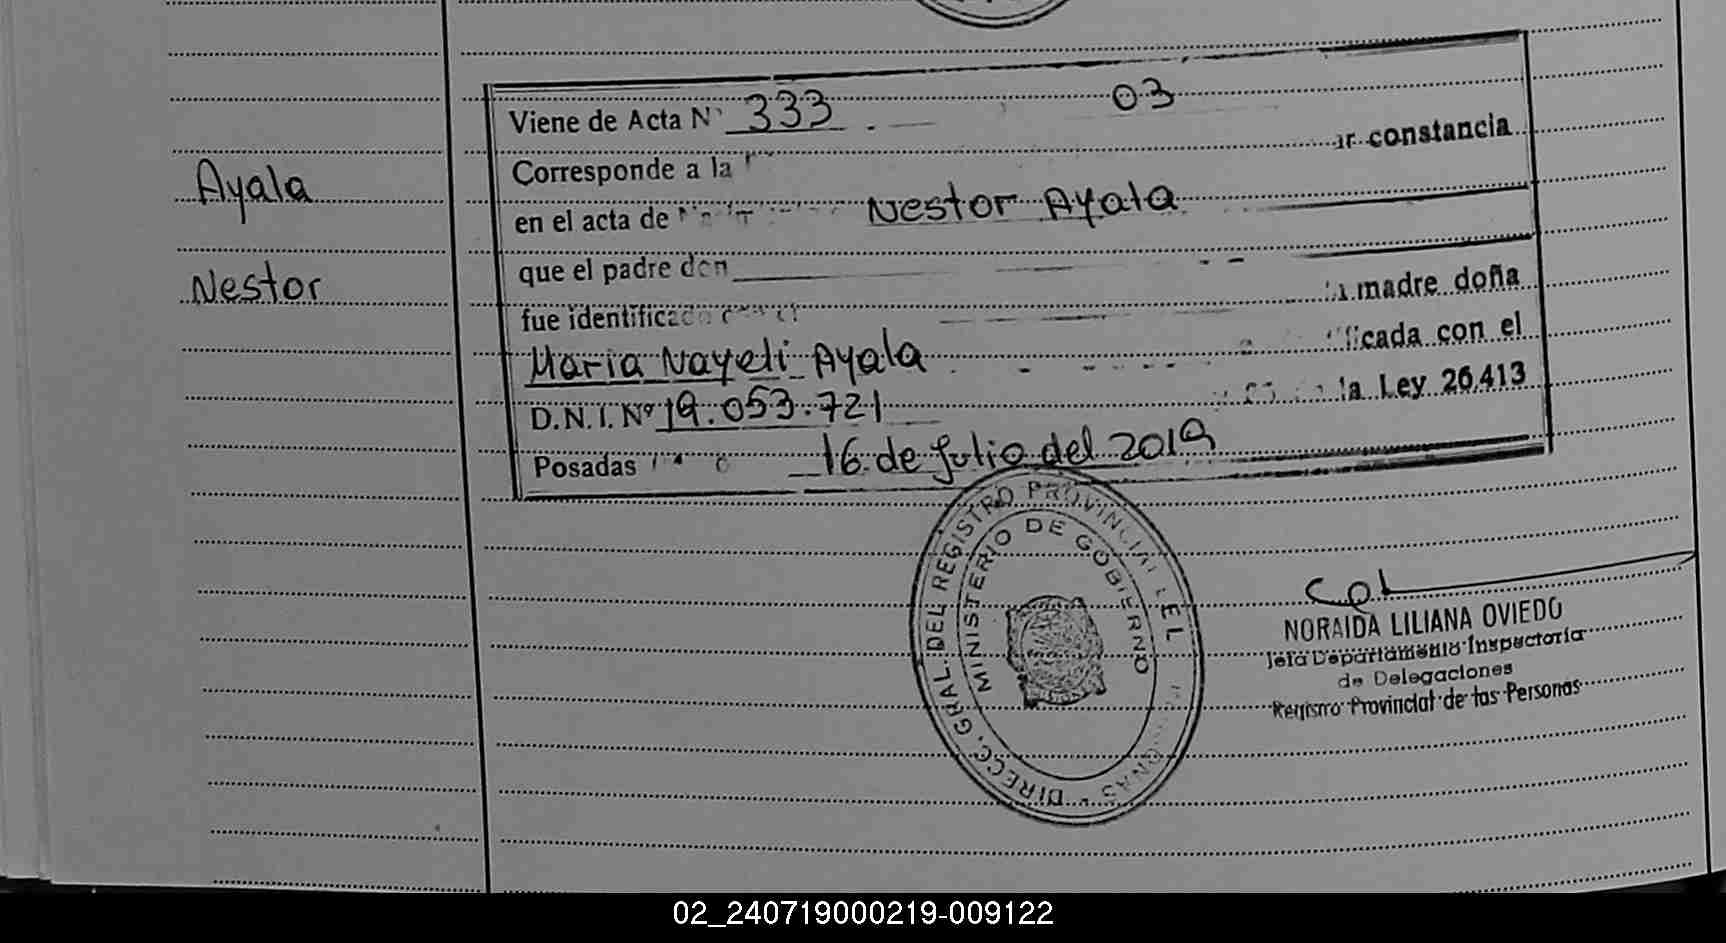 Viene de Acta Nº 333 03
Corresponde a la ar constancia
Ayala
en el acta de Nestor Ayala
que el padre don
Nestor
fue identificado la madre doña
Maria Nayeli Ayala ificada con el
D.N.I. Nº 19.053.721 la Ley 26.413
Posadas 16 de Julio del 2019
DIRECC. GRAL. DEL REGISTRO PROVINCIAL
MINISTERIO DE GOBIERNO
NORAIDA LILIANA OVIEDO
Jefa Departamento Inspectoria
de Delegaciones
Registro Provincial de las Personas
02_240719000219-009122